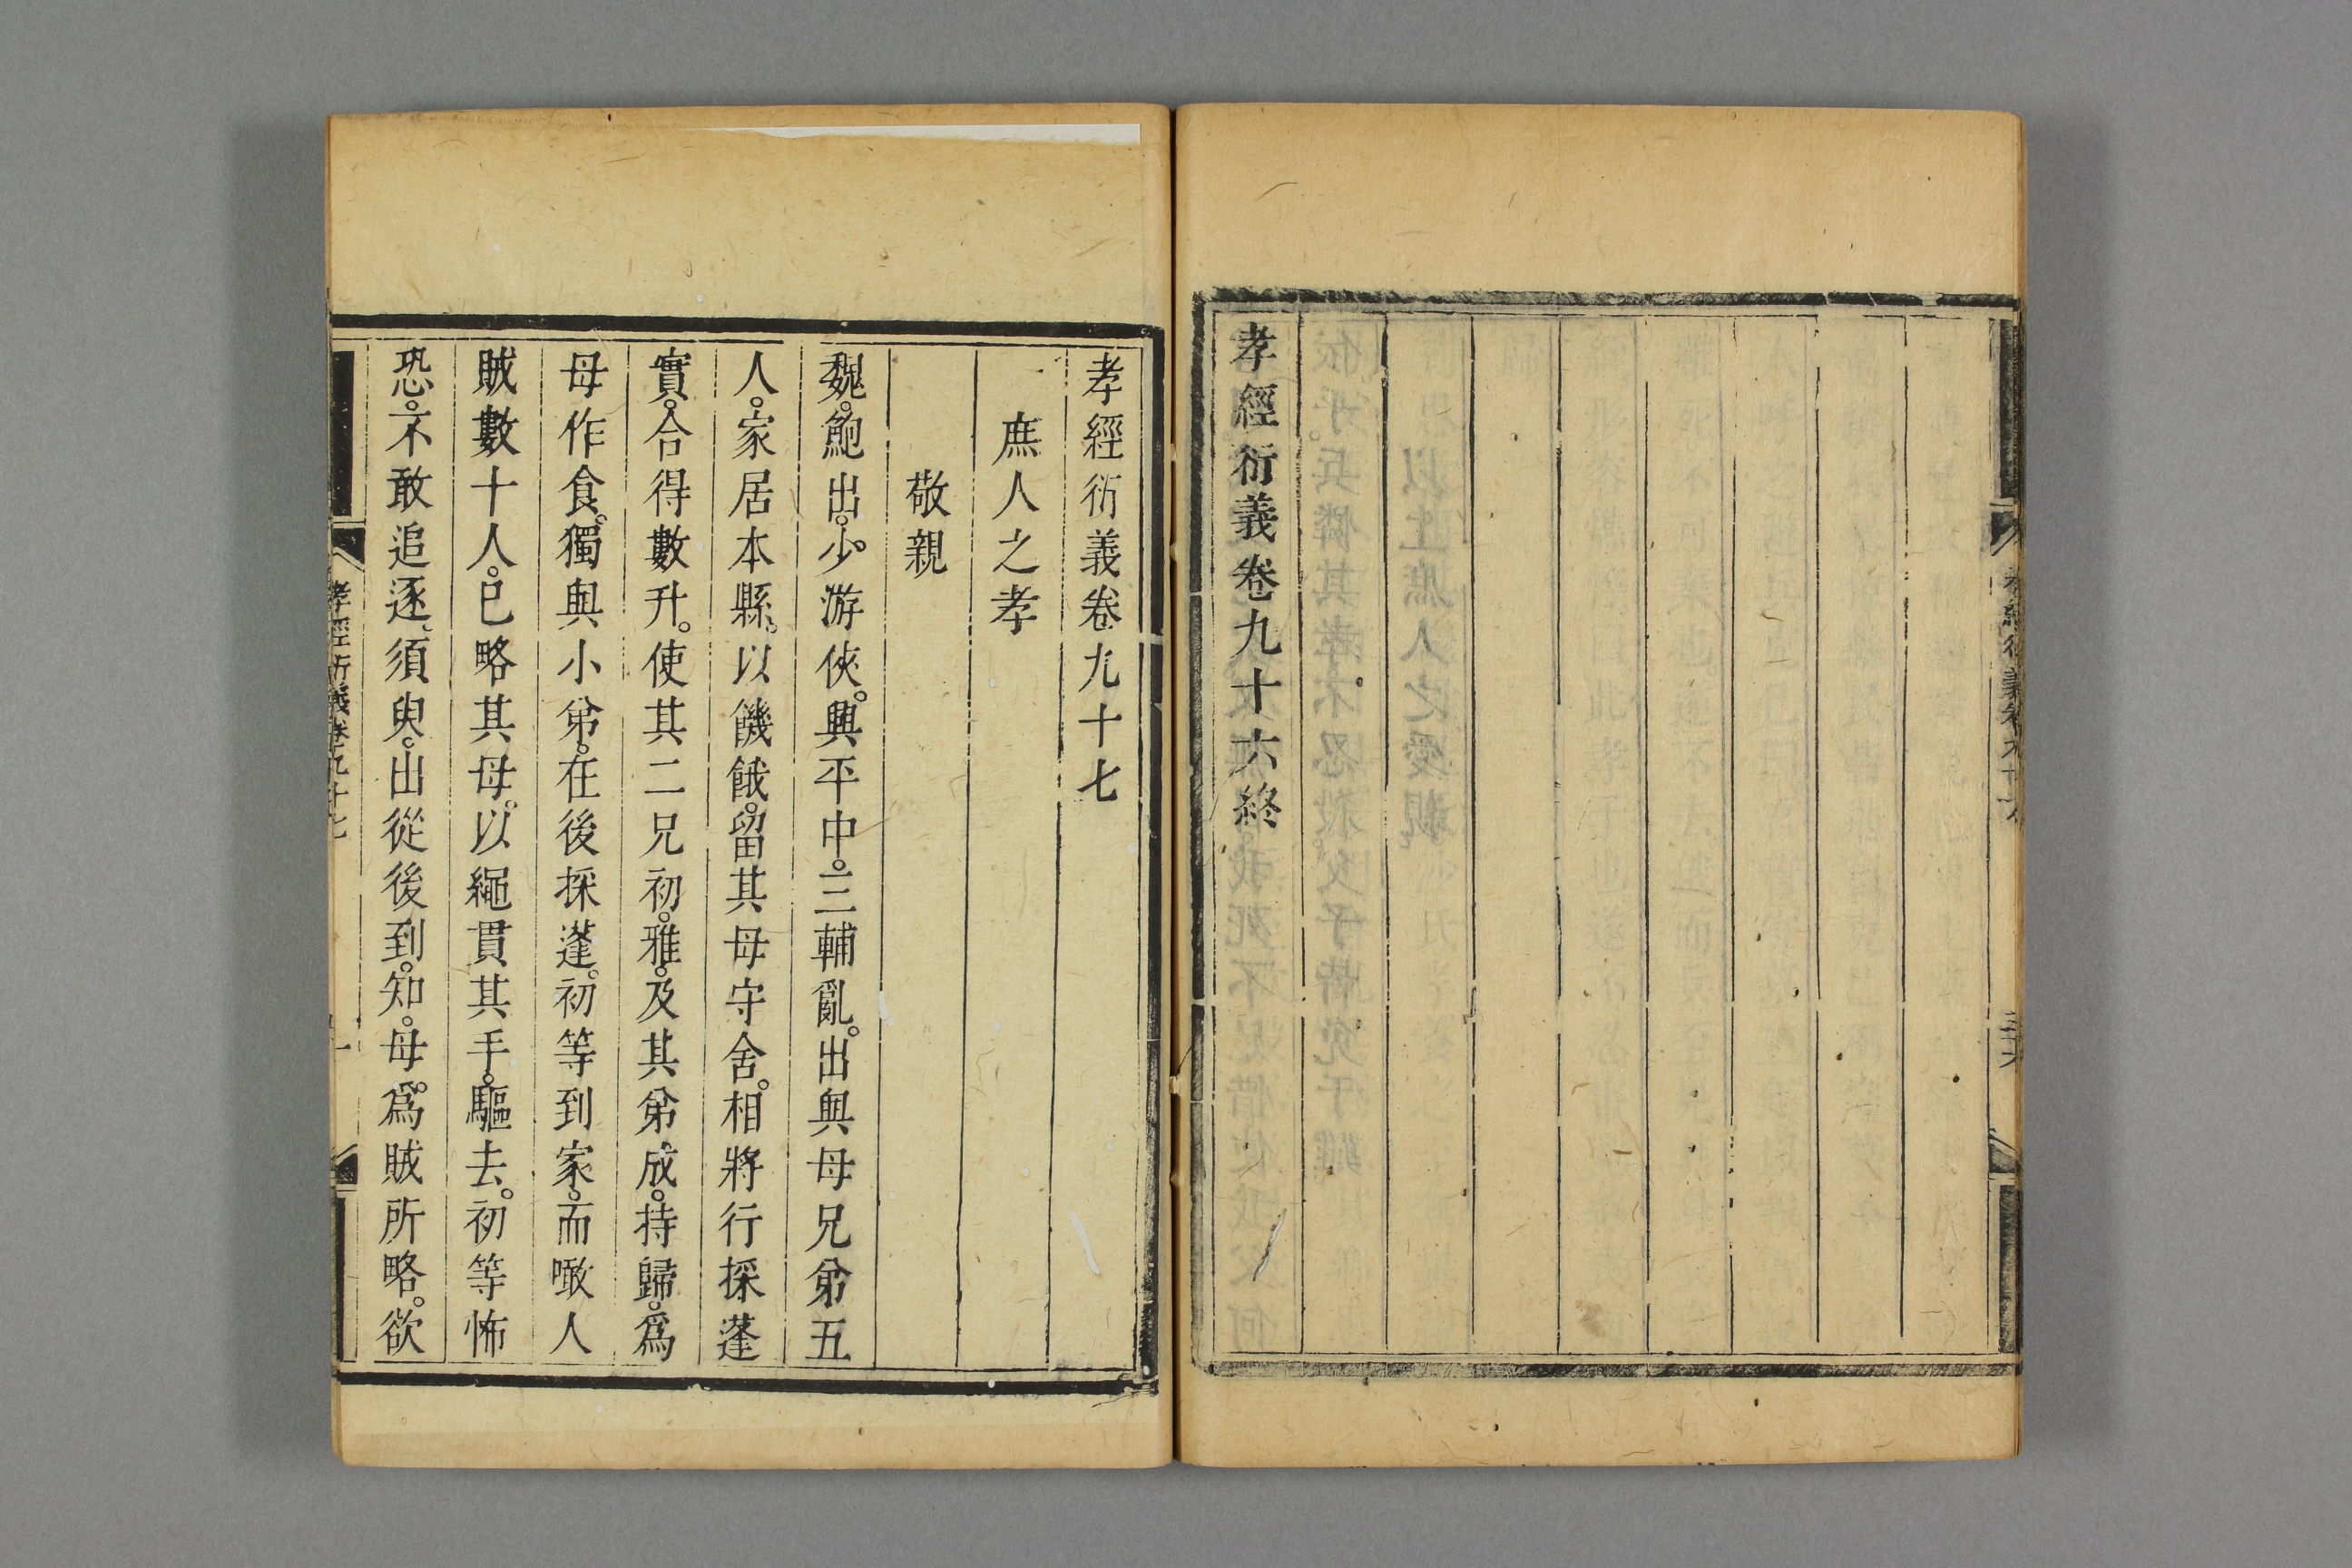 孝經衍義卷九十六
三十六
孝經衍義卷九十六終
孝經衍義卷九十七
庶人之孝
敬親
魏。鮑出。少。游俠。興平中。三輔亂。出與母兄弟五
人。家居本縣。以饑餓。留其母守舍。相將行採蓬
實。合得數升。使其二兄初。雅。及其弟成。持歸。爲
母作食。獨與小弟。在後採蓬。初等到家。而噉人
賊數十人。已略其母。以繩貫其手。驅去。初等怖
恐。不敢追逐。須臾。出從後到。知。母。爲賊所略。欲
孝經衍義卷九十七
一